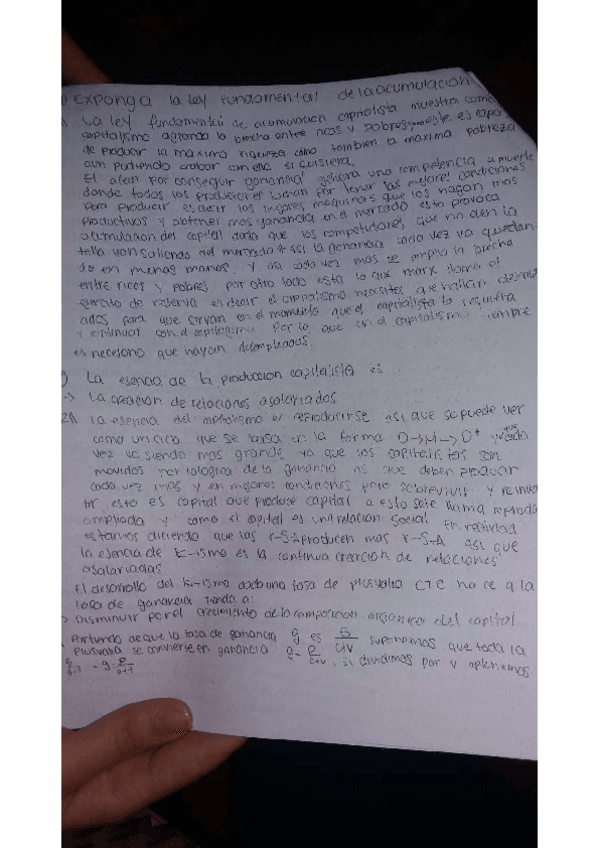 Exponga la ley fundamental de la acumulación
La ley fundamental de acumulación capitalista muestra como
capitalismo agranda la brecha entre ricos y pobres este es capaz
de producir la maxima riqueza como tambien la maxima pobreza
aun pudiendo acabar con ella si quisiera.
El afan por conseguir ganancia genera una competencia a muerte
donde todos los productores luchan por tener las mejores condiciones
para producir es decir las mejores maquinas que los hagan mas
productivos y obtener mas ganancia en el mercado esto provoca
acumulacion del capital dado que los competidores que no den la
talla van saliendo del mercado y asi la ganancia cada vez va quedan
do en menos manos, y asi cada vez mas se amplia la brecha
entre ricos y pobres. por otro lado esta lo que marx llama el
ejercito de reserva es decir el capitalismo necesita que hallan desemple
ados para que sirvan en el momento que el capitalista lo requiera
y continuar con el capitalismo. Por lo que en el capitalismo siempre
es necesario que hayan desempleados.
La esencia de la produccion capitalista es
→ La creacion de relaciones asalariadas
RA La esencia del capitalismo es reproducirse asi que se puede ver
como un ciclo que se basa en la forma D→M→D+ y cada
vez va siendo mas grande ya que los capitalistas son
movidos por la logica de la ganancia es que deben producir
cada vez mas y en mejores condiciones para sobrevivir y reinver
tir esto es capital que produce capital a esto se le llama reprodu
ampliada y como el capital es una relacion social en realidad
estamos diciendo que las r-S-A producen mas r-S-A asi que
la esencia de K-ismo es la continua creacion de relaciones
asalariadas
El desarrollo del K-ismo dado una tasa de plusvalia CTE hace q la
tasa de ganancia tienda a:
Disminuir por el crecimiento de la composicion organica del capital
Partiendo de que la tasa de ganancia g es S/C+V suponemos que toda la
plusvalia se convierte en ganancia g = P/C+V, si dividimos por v obtenemos